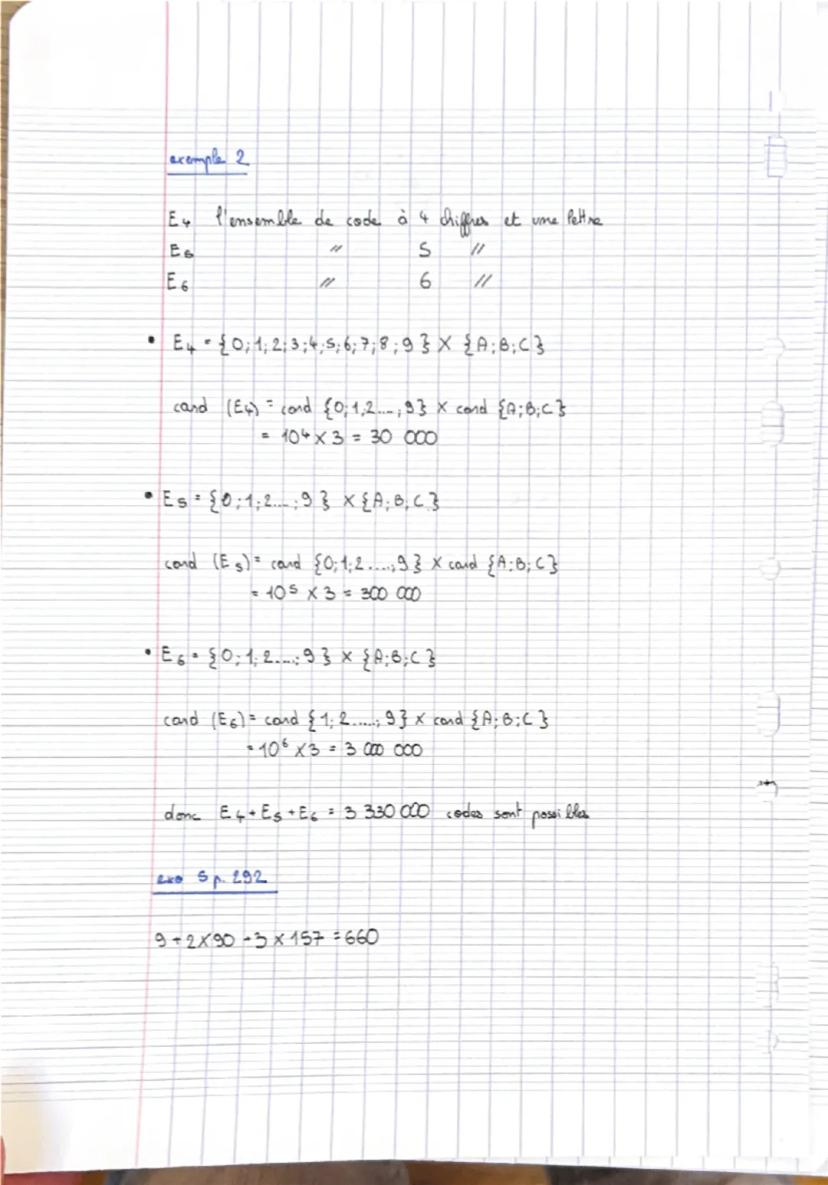 exemple 2
E4 l'ensemble de code à 4 chiffres et une lettre
E5 " 5 "
E6 " 6 "
• E4 = {0;1;2;3;4;5;6;7;8;9} X {A;B;C}
card (E4) = card {0;1,2...;9} X card {A;B;C}
= 10⁴ X 3 = 30 000
• E5 = {0;1;2...;9} X {A;B;C}
card (E5) = card {0;1;2....;9} X card {A;B;C}
= 10⁵ X 3 = 300 000
• E6 = {0;1;2....;9} X {A;B;C}
card (E6) = card {1;2.....;9} X card {A;B;C}
= 10⁶ X 3 = 3 000 000
donc E4 + E5 + E6 = 3 330 000 codes sont possibles
exo 5 p. 292
9 + 2 X 90 + 3 X 157 = 660